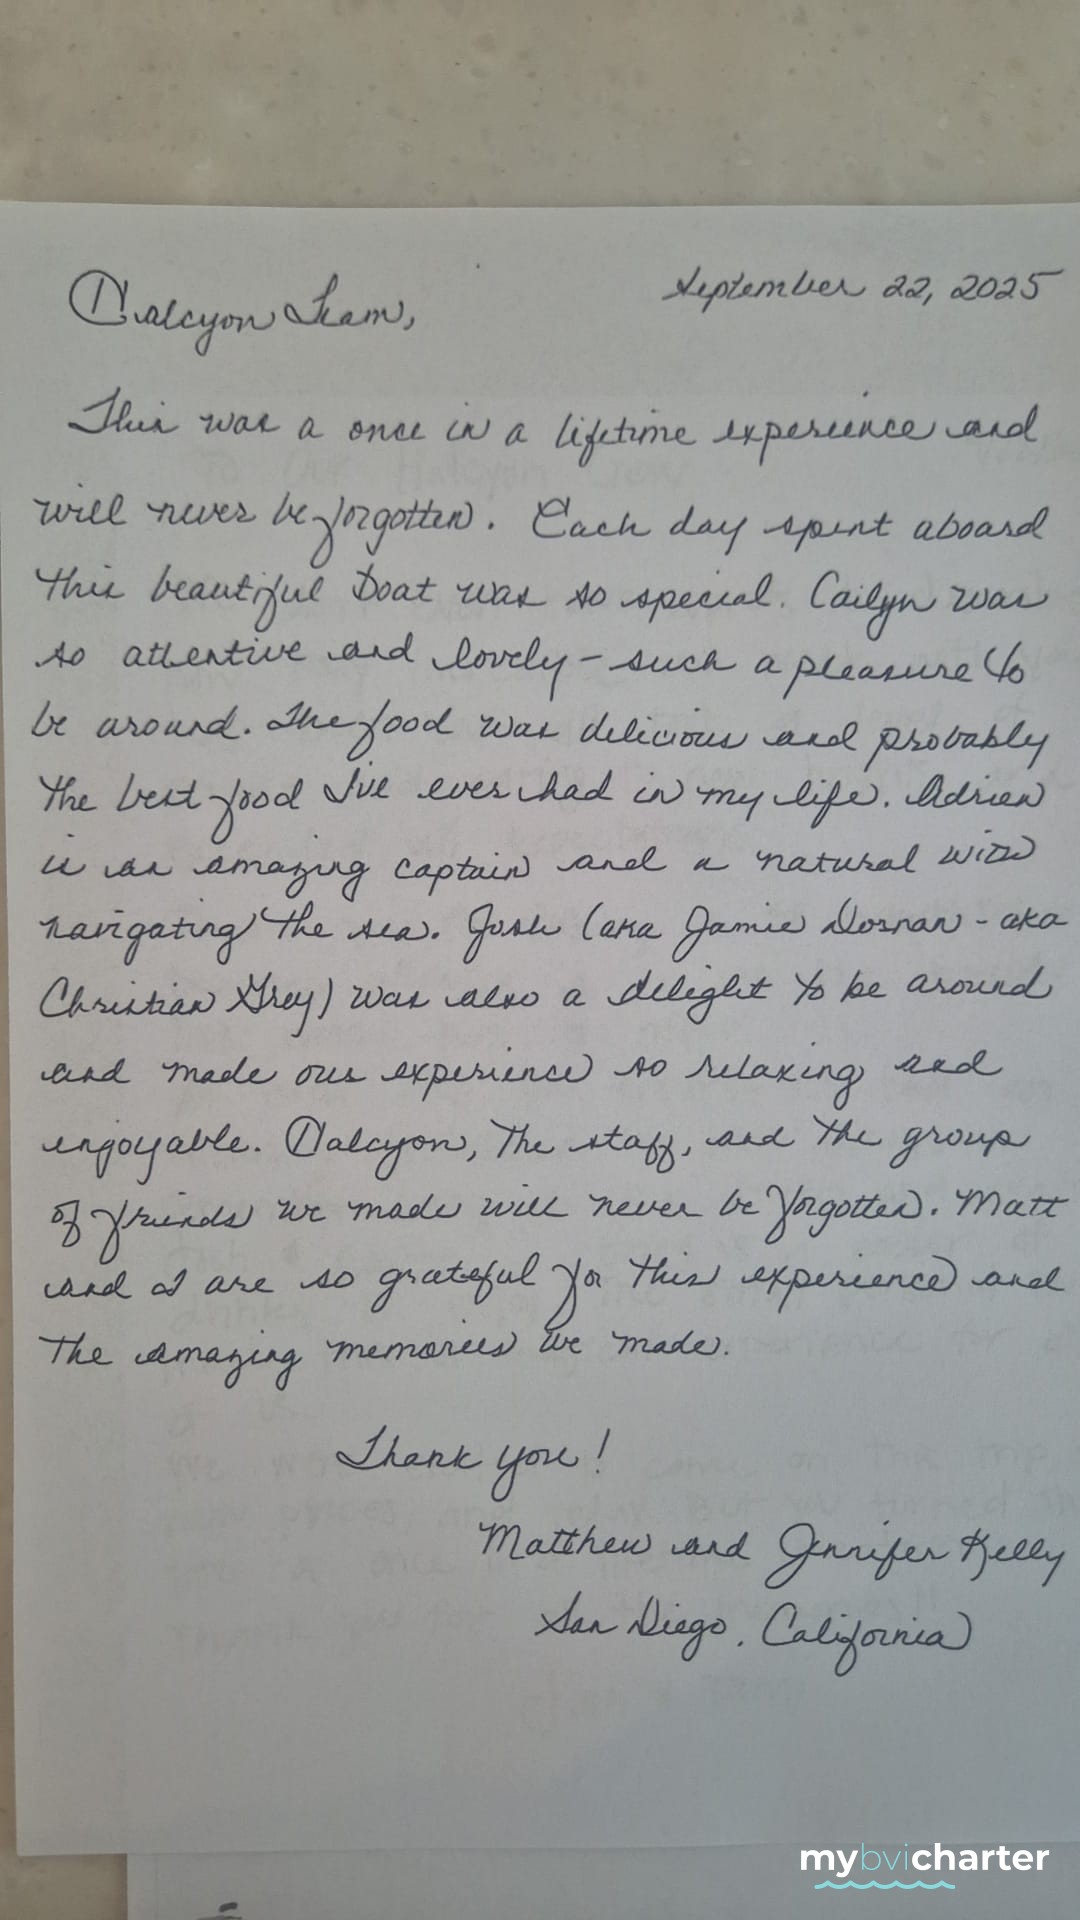 September 22, 2025
Halcyon Team,
This was a once in a lifetime experience and
will never be forgotten. Each day spent aboard
this beautiful boat was so special. Cailyn was
so attentive and lovely - such a pleasure to
be around. The food was delicious and probably
the best food I've ever had in my life. Adrien
is an amazing captain and a natural with
navigating the sea. Josh (aka Jamie Dornan - aka
Christian Grey) was also a delight to be around
and made our experience so relaxing and
enjoyable. Halcyon, the staff, and the group
of friends we made will never be forgotten. Matt
and I are so grateful for this experience and
the amazing memories we made.
Thank you!
Matthew and Jennifer Kelly
San Diego, California
mybvicharter